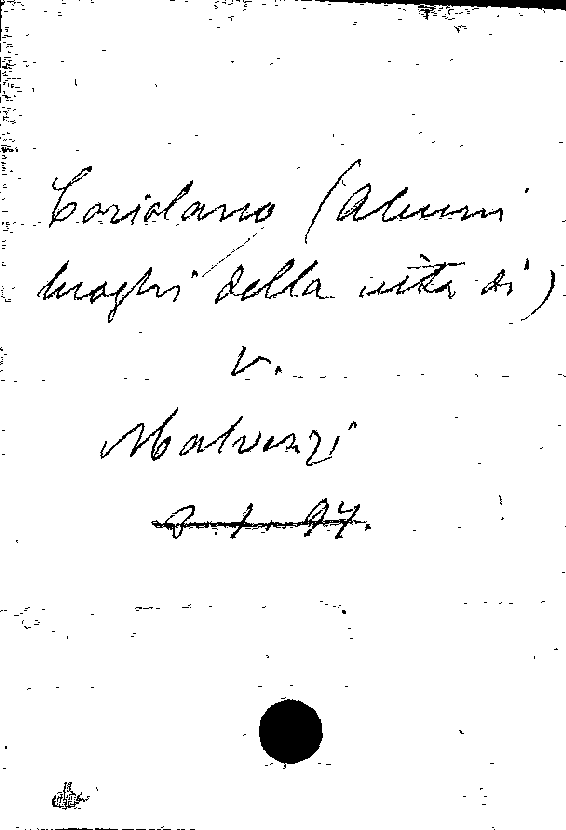 Coriolano (Alcuni
luoghi della vita di)
v.
Malvezzi
8.1.94.